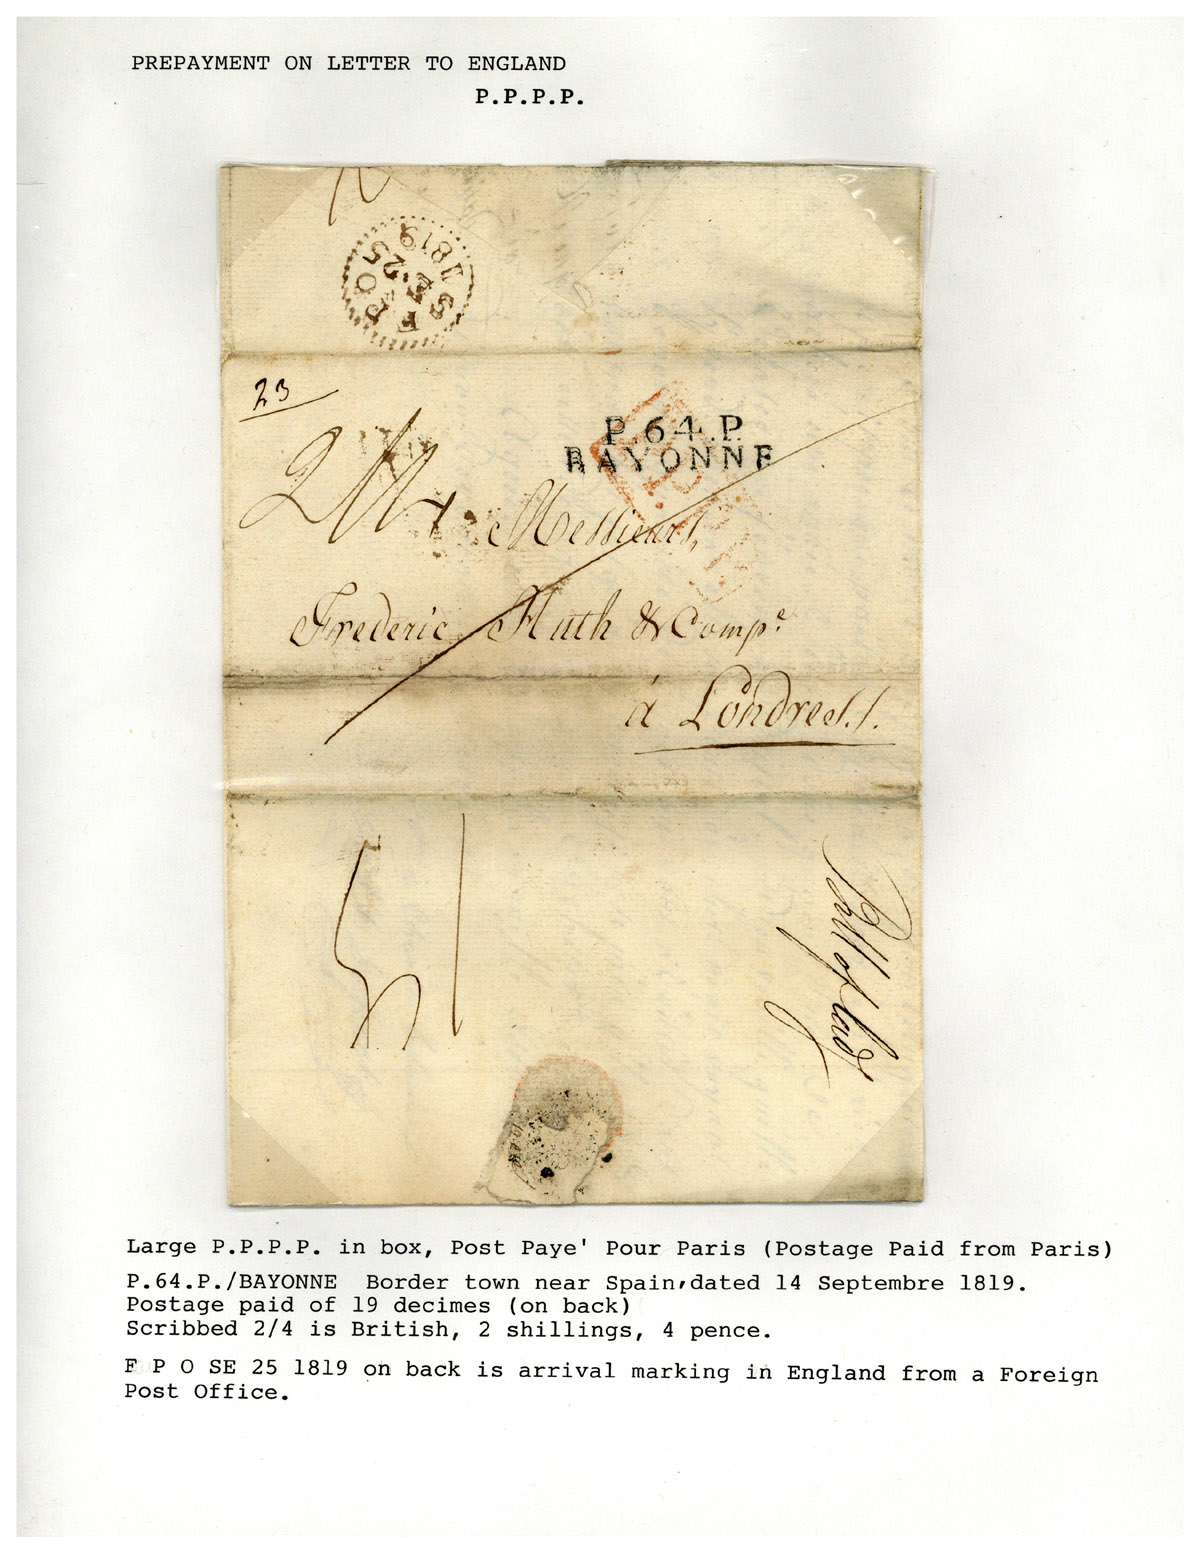 PREPAYMENT ON LETTER TO ENGLAND
P.P.P.P.
F P O
SE 25
1819
23
P.64.P.
BAYONNE
Messieurs,
Frederic Huth & Compe
á Londres./.
Bill of lad
Large P.P.P.P. in box, Post Paye' Pour Paris (Postage Paid from Paris)
P.64.P./BAYONNE Border town near Spain,dated 14 Septembre 1819.
Postage paid of 19 decimes (on back)
Scribbed 2/4 is British, 2 shillings, 4 pence.
F P O SE 25 1819 on back is arrival marking in England from a Foreign
Post Office.